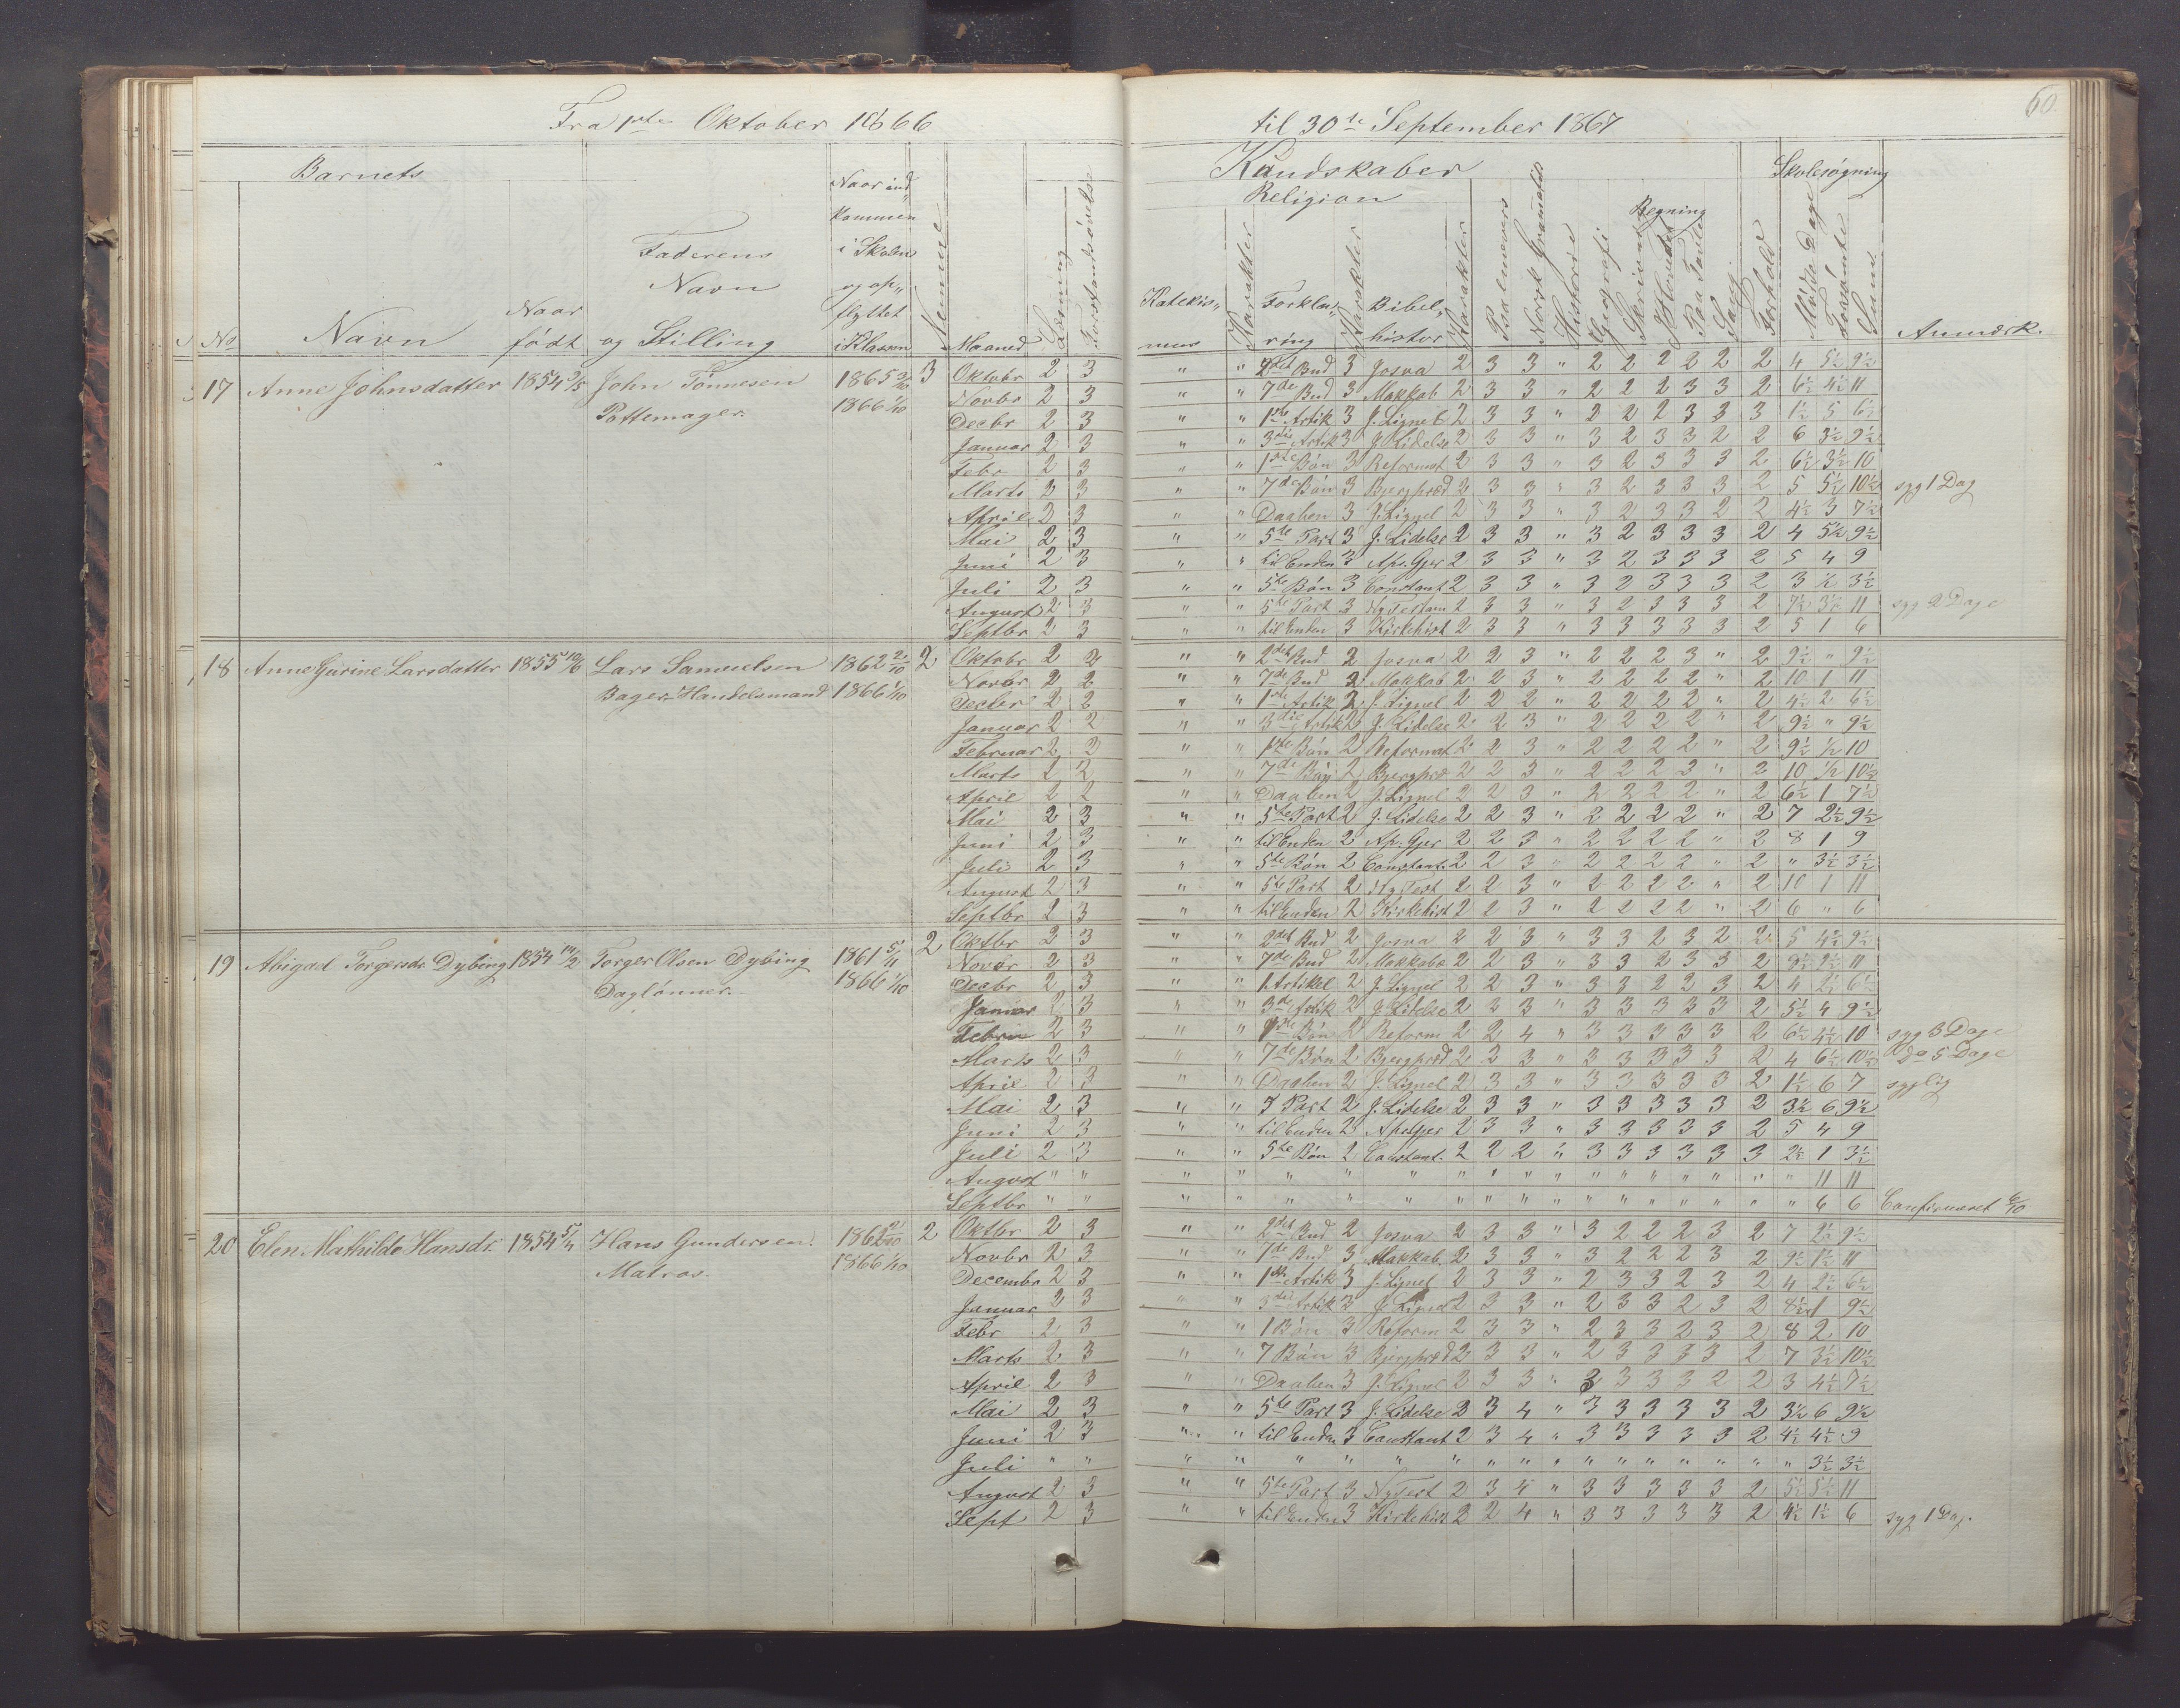 Fra 1ste Oktober 1866 til 30te September 1867
60
Barnets
No
Navn
Naar født
Faderens Navn og Stilling
Naar ind„ kommen i Skolen og op„ flyttet i Klassen
Nemme
Maaned
Læsning
Forstandsøvelse
Kundskaber
Religion
Katekis„ mus
Karakter
Forkla„ ring
Karakter
Bibel„ histor
Karakter
Psalmevers
Norsk Gramatik
Historie
Geografi
Skrivning
Regning
I Hovedet
Paa Tavle
Sang
Forhold
Skolesøgning
Mødte Dage
Forsømte
Sum
Anmærk.
17 Anne Johnsdatter 1854 3/5 John Tönnesen Pottemager. 1865 2/10 1866 1/10 3
Oktobr 2 3 " " 2det Bud 3 Josva 2 3 3 " 2 2 2 2 2 2 4 5½ 9½
Novbr 2 3 " " 7de Bud 3 Makkab 2 3 3 " 2 2 2 3 3 2 6½ 4½ 11
Decbr 2 3 " " 1ste Artik 3 J. Lignel 2 3 3 " 2 2 2 3 3 3 1½ 5 6½
Januar 2 3 " " 3die Artik 3 J. Lidelse 2 3 3 " 3 2 3 3 2 2 6 3½ 9½
Febr 2 3 " " 1ste Bön 3 Reformat 2 3 3 " 3 2 3 3 3 2 6½ 3½ 10
Marts 2 3 " " 7de Bön 3 Bjergpræd 2 3 3 " 3 2 3 3 3 2 5 5½ 10½ syg 1 Dag
April 2 3 " " Daaben 3 J. Lignel 2 3 3 " 3 2 3 3 2 2 4½ 3 7½
Mai 2 3 " " 5te Part 3 J. Lidelse 2 3 3 " 3 2 3 3 3 2 4 5½ 9½
Juni 2 3 " " til Enden 3 Ap. Gjer 2 3 3 " 3 2 3 3 3 2 5 4 9
Juli 2 3 " " 5te Bön 3 Constant 2 3 3 " 3 2 3 3 3 2 3 ½ 3½
August 2 3 " " 5te Part 3 Ny Testam 2 3 3 " 3 2 3 3 3 2 7½ 3½ 11 syg 2 Dage
Septbr 2 3 " " til Enden 3 Kirkehist 2 3 3 " 3 3 3 3 3 2 5 1 6
18 Anne Gurine Larsdatter 1855 10/6 Lars Samuelsen Bager. Handelsmand 1862 2/10 1866 1/10 2
Oktobr 2 2 " " 2det Bud 2 Josva 2 2 3 " 2 2 2 3 " 2 9½ " 9½
Novbr 2 2 " " 7de Bud 2 Makkab 2 2 3 " 2 2 2 2 " 2 10 1 11
Decbr 2 2 " " 1ste Artik 2 J. Lignel 2 2 2 " 2 2 2 2 " 2 4½ 2 6½
Januar 2 2 " " 3die Artik 2 J. Lidelse 2 2 3 " 2 2 2 2 " 2 9½ " 9½
Februar 2 2 " " 1ste Bön 2 Reformat 2 2 3 " 2 2 2 2 " 2 9½ ½ 10
Marts 2 2 " " 7de Bön 2 Bjergpræ 2 2 3 " 2 2 2 3 " 2 10 ½ 10½
April 2 2 " " Daaben 2 J. Lignel 2 2 3 " 2 2 2 2 " 2 6½ 1 7½
Mai 2 3 " " 5te Part 2 J. Lidelse 2 2 3 " 2 2 2 2 " 2 7 2½ 9½
Juni 2 3 " " til Enden 2 Ap. Gjer 2 2 3 " 2 2 2 2 " 2 8 1 9
Juli 2 3 " " 5te Bön 2 Constant. 2 2 3 " 2 2 2 2 " 2 " 3½ 3½
August 2 3 " " 5te Part 2 Ny Test 2 2 3 " 2 2 2 2 " 2 10 1 11
Septbr 2 3 " " til Enden 2 Kirkehist 2 2 3 " 2 2 2 2 " 2 6 " 6
19 Abigael Torgersdr. Dybing 1854 14/2 Torger Olsen Dybing Daglønner. 1861 5/11 1866 1/10 2
Oktbr 2 3 " " 2det Bud 2 Josva 2 2 3 " 3 3 2 3 2 2 5 4½ 9½
Novbr 2 3 " " 7de Bud 2 Makkabæ 2 2 3 " 3 3 2 3 3 2 9½ 1½ 11
Decbr 2 3 " " 1 Artikel 2 J. Lignel 2 2 3 " 3 3 2 2 3 2 4 2½ 6½
Januar 2 3 " " 3de Artik 2 J. Lidelse 2 2 3 " 3 3 3 3 3 2 5½ 4 9½
Februar 2 3 " " 1ste Bön 2 Reform 2 2 4 " 3 3 3 3 3 2 6½ 4½ 10 syg 3 Dage
Marts 2 3 " " 7de Bön 2 Bjergpræd 2 2 3 " 3 3 3 3 3 2 4 6½ 10½ Do 5 Dage
April 2 3 " " Daaben 2 J. Lignel 2 3 3 " 3 3 3 3 3 2 1½ 6 7 syglig
Mai 2 3 " " 5 Part 2 J. Lidelse 2 3 3 " 3 3 3 3 3 2 3½ 6 9½
Juni 2 3 " " til Enden 2 Ap. Gjer 2 3 3 " 3 3 3 3 3 2 5 4 9
Juli 2 3 " " 5te Bön 2 Constant. 2 2 2 " 3 3 3 3 3 3 2½ 1 3½
August " " " " " " " " " " " " " " " " " " 11 11
Septbr " " " " " " " " " " " " " " " " " " 6 6 Confirmeret 6/10
20 Elen Mathilde Hansdr. 1854 5/4 Hans Gundersen Matros. 1862 2/10 1866 1/10 2
Oktbr 2 3 " " 2det Bud 2 Josva 2 3 3 " 3 2 2 2 3 2 7 2½ 9½
Novbr 2 3 " " 7de Bud 3 Makkab. 2 3 3 " 3 2 2 2 3 2 9½ 1½ 11
Decembr 2 3 " " 1ste Artik 3 J. Lignel 2 3 3 " 2 3 3 2 3 2 4 2½ 6½
Januar 2 3 " " 3die Artik 3 J. Lignel 2 3 3 " 2 3 3 2 3 2 8½ 1 9½
Febr 2 3 " " 1 Bön 3 Reform 2 3 3 " 2 3 3 2 3 2 8 2 10
Marts 2 3 " " 7 Bön 3 Bjergpræd 2 3 3 " 2 3 3 3 3 2 7 3½ 10½
April 2 3 " " Daaben 3 J. Lignel 2 3 3 " 3 3 3 3 2 2 3 4½ 7½
Mai 2 3 " " 5te Part 3 J. Lidelse 2 3 4 " 3 3 3 3 3 2 3½ 6 9½
Juni 2 3 " " til Enden 3 Constant 2 3 4 " 3 3 3 3 3 2 4½ 4½ 9
Juli " " " " " " " " " " " " " " " " " " 3½ 3½
August 2 3 " " 5te Part 3 Ny Test 2 3 4 " 3 3 3 3 3 2 5½ 5½ 11
Sept 2 3 " " til Enden 3 Kirkehist 2 2 4 " 3 3 3 3 3 2 4½ 1½ 6 syg 1 Dag.